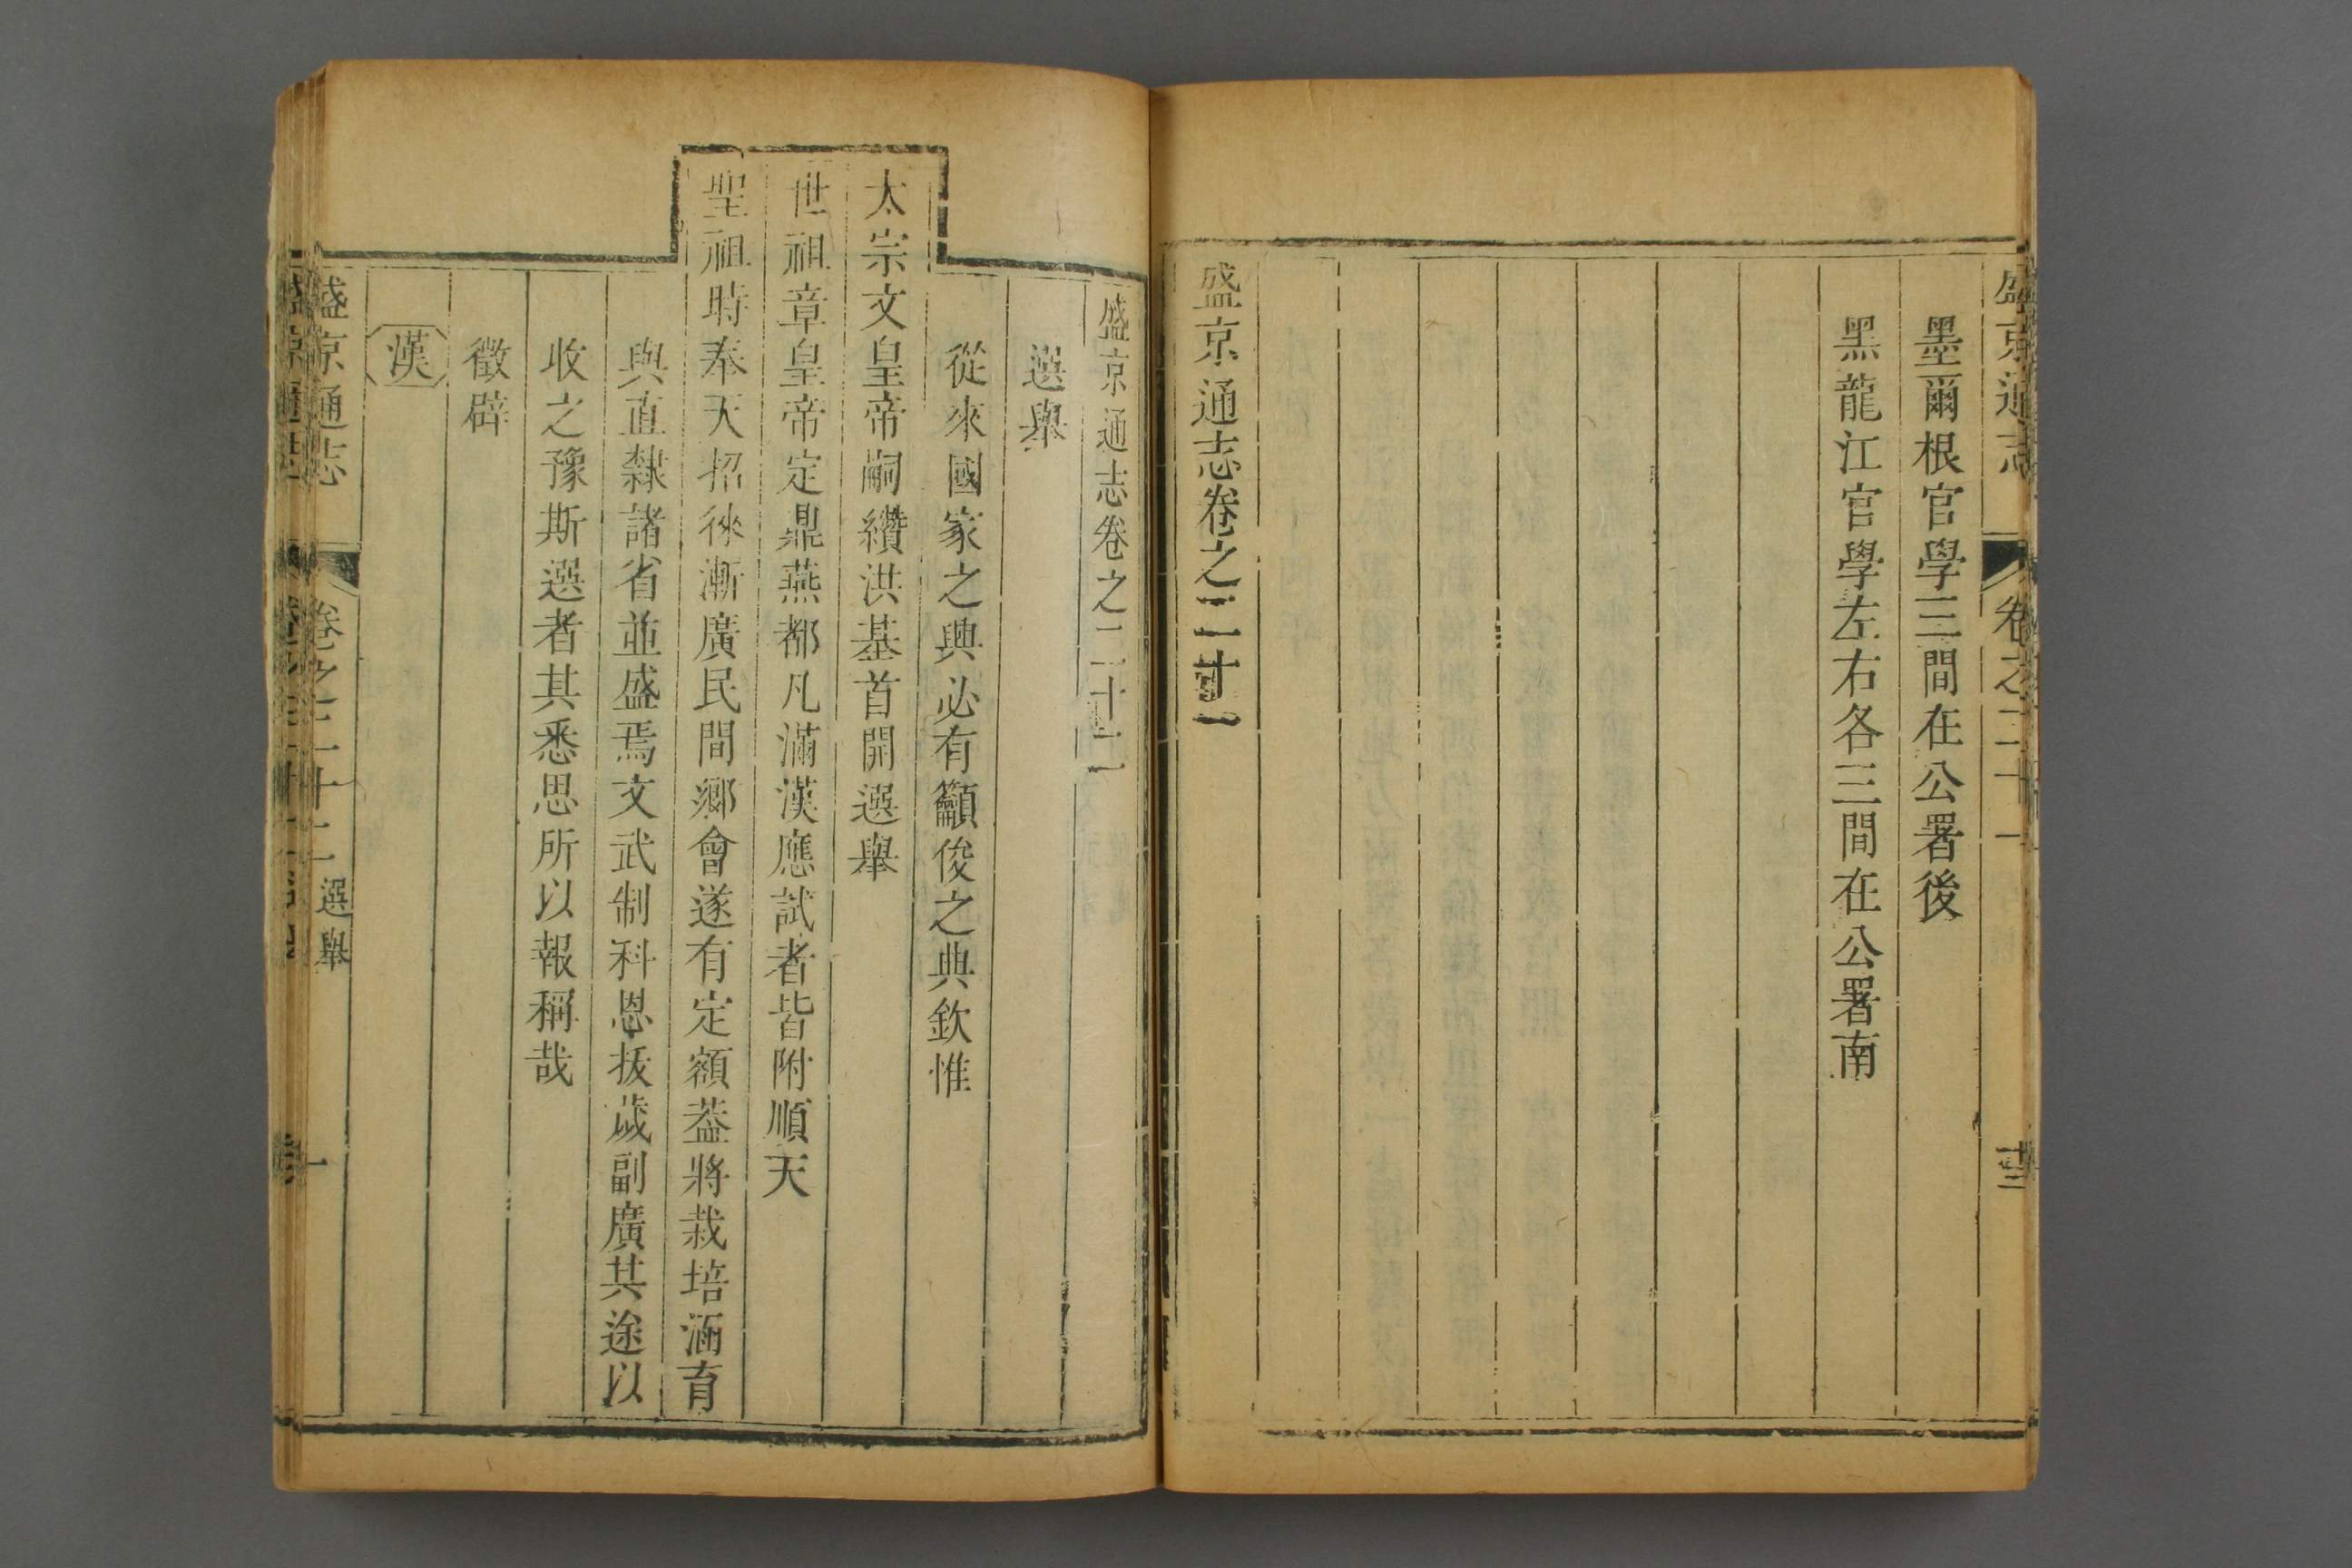 盛京通志 卷之二十一
墨爾根官學三間在公署後
黑龍江官學左右各三間在公署南
盛京通志卷之二十一
盛京通志卷之二十二
選舉
從來國家之興必有籲俊之典欽惟
太宗文皇帝嗣纘洪基首開選舉
世祖章皇帝定鼎燕都凡滿漢應試者皆附順天
聖祖時奉天招徠漸廣民間鄉會遂有定額葢將栽培涵育
與直隸諸省並盛焉文武制科恩拔歲副廣其途以
收之豫斯選者其悉思所以報稱哉
徵辟
漢
盛京通志 卷之二十二 選舉 一